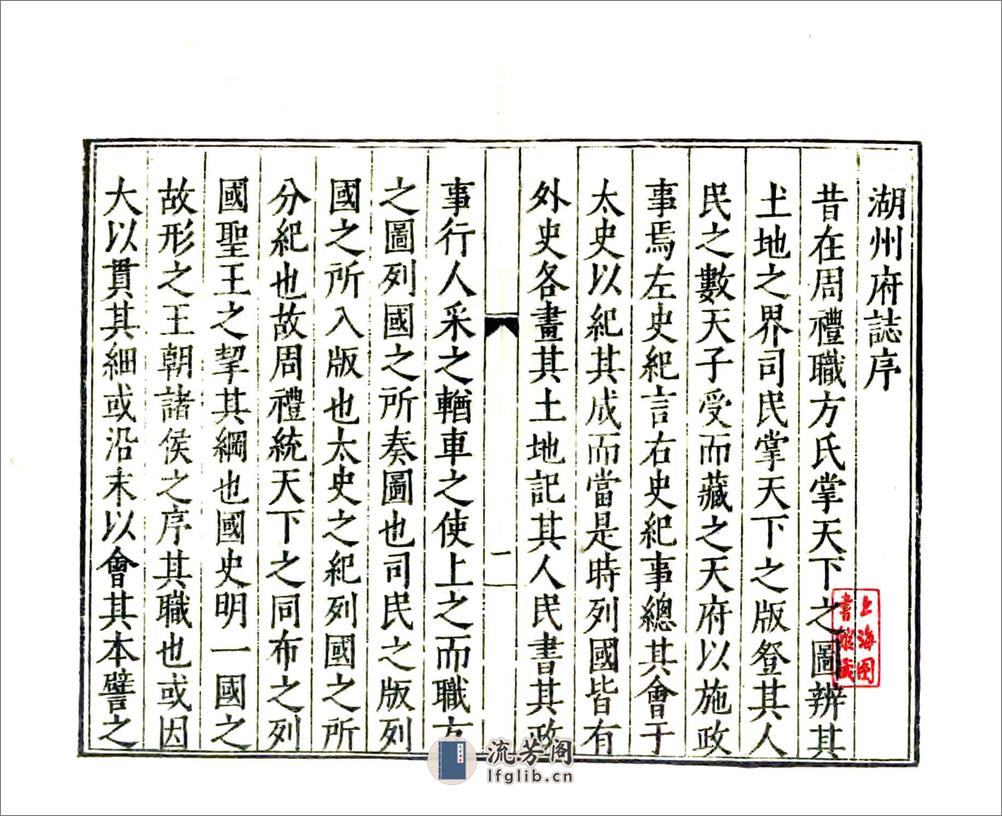 湖州府誌序
昔在周禮職方氏掌天下之圖辨其
土地之界司民掌天下之版登其人
民之數天子受而藏之天府以施政
事焉左史紀言右史紀事總其會于
太史以紀其成而當是時列國皆有
外史各畫其土地記其人民書其政
二
事行人采之輶車之使上之而職方
之圖列國之所奏圖也司民之版列
國之所入版也太史之紀列國之所
分紀也故周禮統天下之同布之列
國聖王之挈其綱也國史明一國之
故形之王朝諸侯之序其職也或因
大以貫其細或沿末以會其本譬之
上海图
書館藏
流芳阁
lfglib.cn